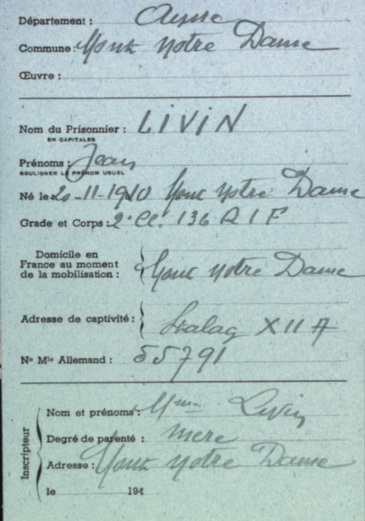 Département : Aisne
Commune : Mont Notre Dame
Œuvre :
Nom du Prisonnier : LIVIN
EN CAPITALES
Prénoms : Jean
SOULIGNER LE PRÉNOM USUEL
Né le 20-11-1910 Mont Notre Dame
Grade et Corps : 2e Cl. 136 R I F
Domicile en
France au moment
de la mobilisation : Mont Notre Dame
Adresse de captivité : Stalag XII A
Nº Mle Allemand : 55791
Inscripteur
Nom et prénoms : Mme Livin
Degré de parenté : mère
Adresse : Mont Notre Dame
le 194